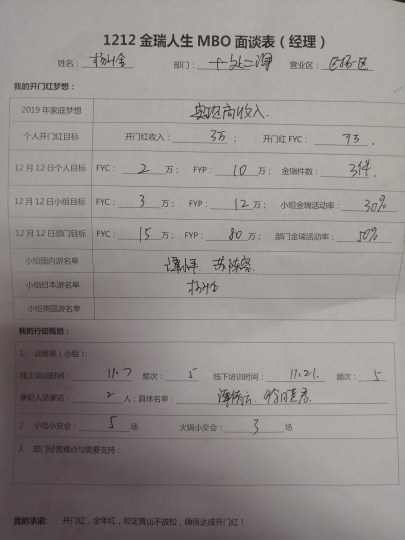 1212 金瑞人生 MBO 面谈表（经理）
姓名： 部门： 营业区：
我的开门红梦想：
2019 年家庭梦想
个人开门红目标 开门红收入： 3万 ； 开门红 FYC： 7万 。
12 月 12 日个人目标 FYC： 2 万； FYP： 10 万； 金瑞件数： 3件 。
12 月 12 日小组目标 FYC： 3 万； FYP： 12 万； 小组金瑞活动率： 30%
12 月 12 日部门目标 FYC： 15 万； FYP： 80 万； 部门金瑞活动率： 50%
小组国内游名单
小组日本游名单
小组英国游名单
我的行动规划：
1. 训练类（小组）：
线上培训时间： 11.7 频次： 5 线下培训时间： 11.21. 频次： 5
兼职人员家访： 2 人；具体名单：
2. 小组小交会： 5 场 火锅小交会： 3 场
3. 部门经营难点与需要支持：
我的承诺： 开门红，全年红，咬定青山不放松，确保达成开门红！